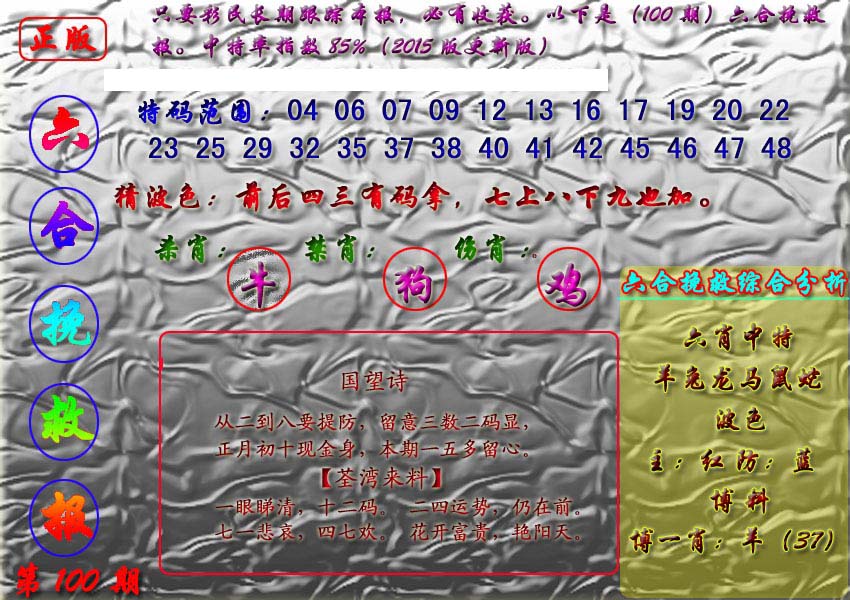 正版
只要彩民长期跟踪本报，必有收获。以下是（100期）六合挽救
报。中特率指数85%（2015版更新版）
六
合
挽
救
报
第100期
特码范围：04 06 07 09 12 13 16 17 19 20 22
23 25 29 32 35 37 38 40 41 42 45 46 47 48
猜波色：前后四三有码拿，七上八下九也加。
杀肖： 禁肖： 伤肖：。
牛 狗 鸡
国望诗
从二到八要提防，留意三数二码显，
正月初十现金身，本期一五多留心。
【荃湾来料】
一眼睇清，十二码。 二四运势，仍在前。
七一悲哀，四七欢。 花开富贵，艳阳天。
六合挽救综合分析
六肖中特
羊兔龙马鼠蛇
波色
主：红防：蓝
博料
博一肖：羊（37）